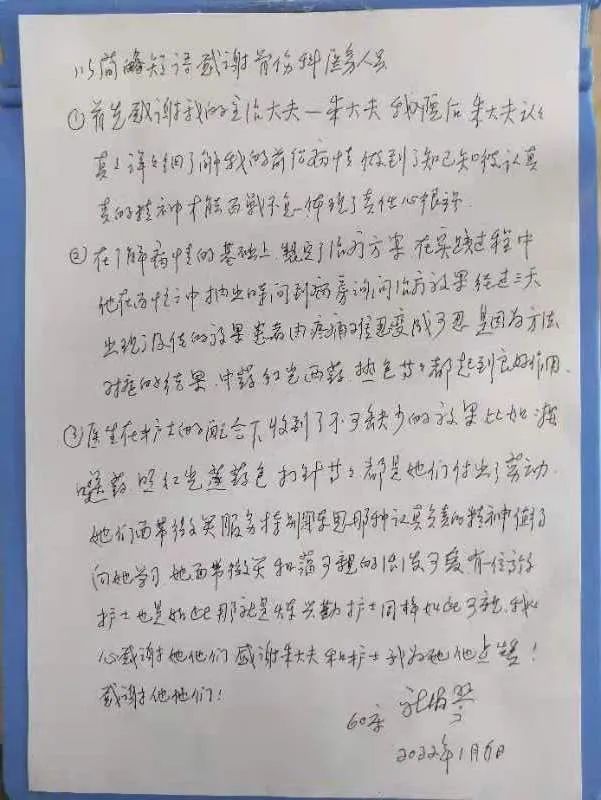 以简略短语感谢骨伤科医务人员
①首先感谢我的主治大夫一朱大夫 我住医后朱大夫认认
真真详详细细了解我的前位病情做到了知己知彼认真
真的精神才能百战不怠体现了责任心很强.
②在了解病情的基础上.制定了治疗方案.在实践过程中
他在百忙之中抽出时间到病房询问治疗效果经过三天
出现了极佳的效果患者由疼痛难忍变成可忍是因为方法
对症的结果.中药红光西药.热包等等都起到良好作用.
③医生在护士的配合下收到了不可缺少的效果比如
药照红光蒸药包打针等等都是她们付出了劳动.
她们面带微笑服务特别 那种认真负责的精神值得
向她学习.她面带微笑和蔼可亲的 可爱有一位
护士也是如此那就是 护士同样如此可亲.我从
心感谢她他们感谢朱大夫和护士我为她他点赞!
感谢他她们!
60床
2022年1月6日